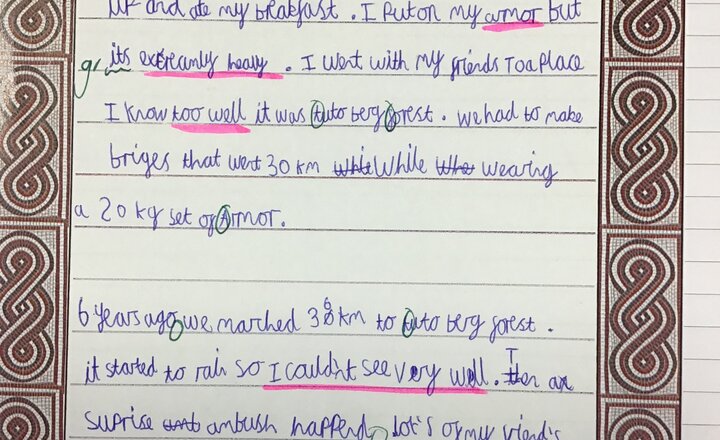 up and ate my breakfast. I Put on my armor but
its extreamly heavy. I went with my friends To a Place
I know too well it was tuto berg forest. we had to make
briges that went 30 km while wearing
a 20 kg set of Armor.
6 years ago we marched 36 km to tuto berg forest.
it started to rain so I couldn't see very well. Then an
suprise ambush happend, Lot's of my friend's